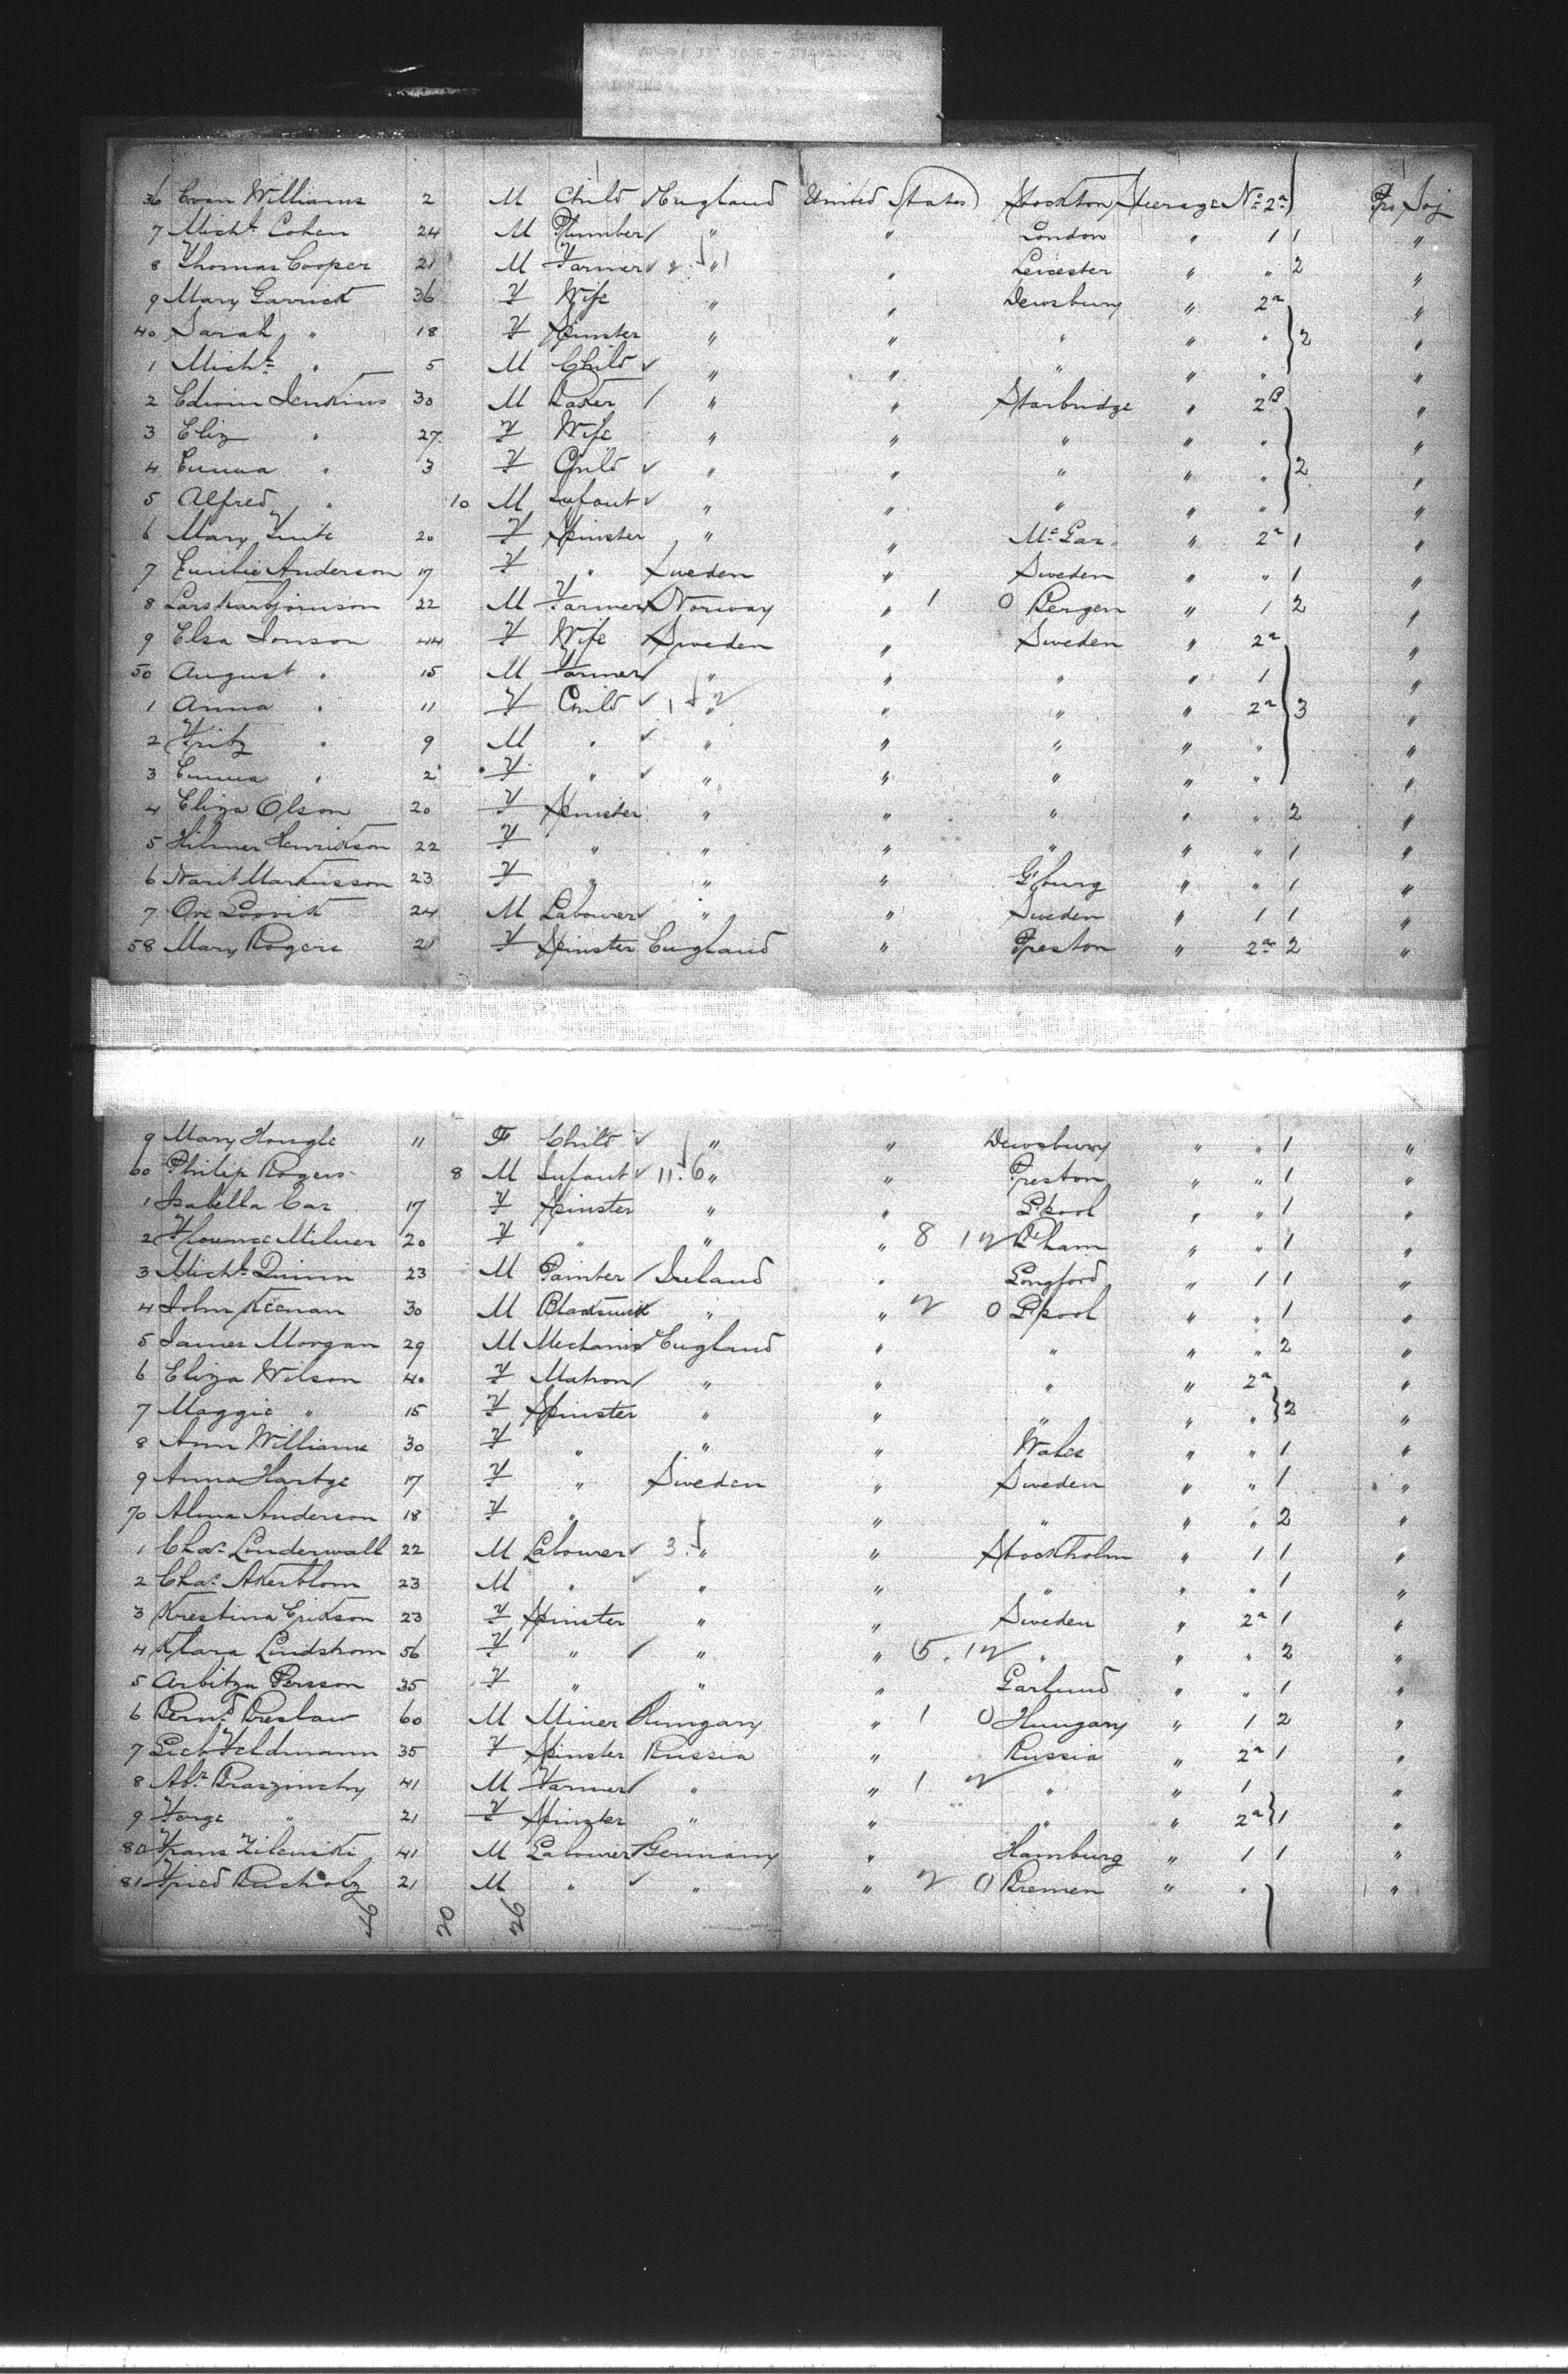 36 Evan Williams 2 M Child England United States Stockton Steerage No 2a Pro Soj
7 Michl Cohen 24 M Plumber " " London " 1 1 "
8 Thomas Cooper 21 M Farmer " " Leicester " " 2 "
9 Mary Garrick 36 F Wife " " Dewsbury " 2a "
40 Sarah " 18 F Spinster " " " " " 2 "
1 Michl " 5 M Child " " " " " "
2 Edwin Jenkins 30 M Baker " " Starbridge " 2B "
3 Eliz " 27 F Wife " " " " " "
4 Emma " 3 F Child " " " " " 2 "
5 Alfred " 10 M Infant " " " " " "
6 Mary 20 F Spinster " " " 2a 1 "
7 Emilie Anderson 17 F " Sweden " Sweden " " 1 "
8 22 M Farmer Norway " 1 0 Bergen " 1 2 "
9 Elsa Jonson 44 F Wife Sweden " Sweden " 2a "
50 August " 15 M Farmer " " " " 1 "
1 Anna " 11 F Child " " " " 2a 3 "
2 Fritz " 9 M " " " " " " "
3 Emma " 2 F " " " " " " "
4 Eliza Olson 20 F Spinster " " " " " 2 "
5 Hilmer Henrikson 22 F " " " " " " 1 "
6 Markusson 23 F " " " G'burg " " 1 "
7 Ove 24 M Labourer " " Sweden " 1 1 "
58 Mary Rogers 21 F Spinster England " Preston " 2a 2 "
9 Mary Hougle 11 F Child " " Dewsbury " " 1 "
60 Philip Rogers 8 M Infant 11.6 " " Preston " " 1 "
1 Isabella Car 17 F Spinster " " L'pool " " 1 "
2 Florence Milner 20 F " " " 8 12 B'ham " " 1 "
3 Michl Quinn 23 M Painter Ireland " Longford " 1 1 "
4 John Keenan 30 M Blacksmith " " 2 0 L'pool " " 1 "
5 James Morgan 29 M Mechanic England " " " " 2 "
6 Eliza Wilson 40 F Matron " " " " 2a "
7 Maggie " 15 F Spinster " " " " " 2 "
8 Ann Williams 30 F " " " Wales " " 1 "
9 Anna Hartge 17 F " Sweden " Sweden " " 1 "
70 Alma Anderson 18 F " " " " " 2 "
1 Chas Linderwall 22 M Labourer 3 " " Stockholm " 1 1 "
2 Chas Akerblom 23 M " " " " " " 1 "
3 Krestina Erikson 23 F Spinster " " Sweden " 2a 1 "
4 Klara Lindstrom 56 F " " " 5 12 " " " 2 "
5 Persson 35 F " " " Garlund " " 1 "
6 Bernd Breslaw 60 M Miner Hungary " 1 0 Hungary " 1 2 "
7 Feldmann 35 F Spinster Russia " Russia " 2a 1 "
8 Abr 41 M Farmer " " 1 2 " " 1 "
9 " 21 F Spinster " " " " 2a 1 "
80 Frans Zilenski 41 M Labourer Germany " Hamburg " 1 1 "
81 Fried Bucholz 21 M " " " 2 0 Bremen " " "
46 20 26